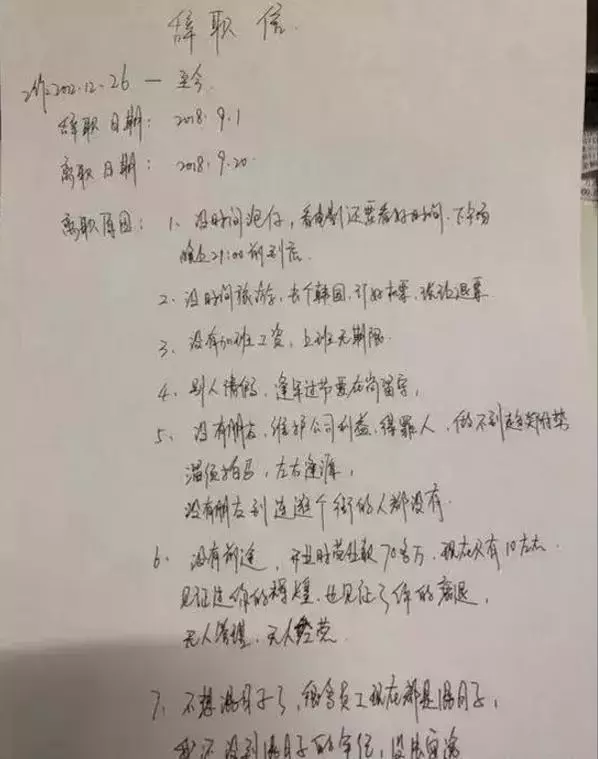 辞职信.
工作2012.12.26 — 至今
辞职日期: 2018.9.1
离职日期: 2018.9.20.
离职原因: 1、没时间泡仔,看电影还要看好时间.下午场
晚上21:00前到店.
2、没时间旅游,去个韩国,订好机票,被迫退票
3、没有加班工资,上班无期限.
4、别人请假,逢年过节要在岗留守,
5、没有朋友,维护公司利益,得罪人,做不到趋炎附势
溜须拍马,左右逢源,
没有朋友到连逛个街的人都没有.
6、没有前途,开业时营业额70多万,现在只有10左右.
见证过你的辉煌、也见证了你的衰退,
无人管理,无人经营.
7、不想混日子了,很多员工现在都是混日子,
我还没到混日子的年纪,没法